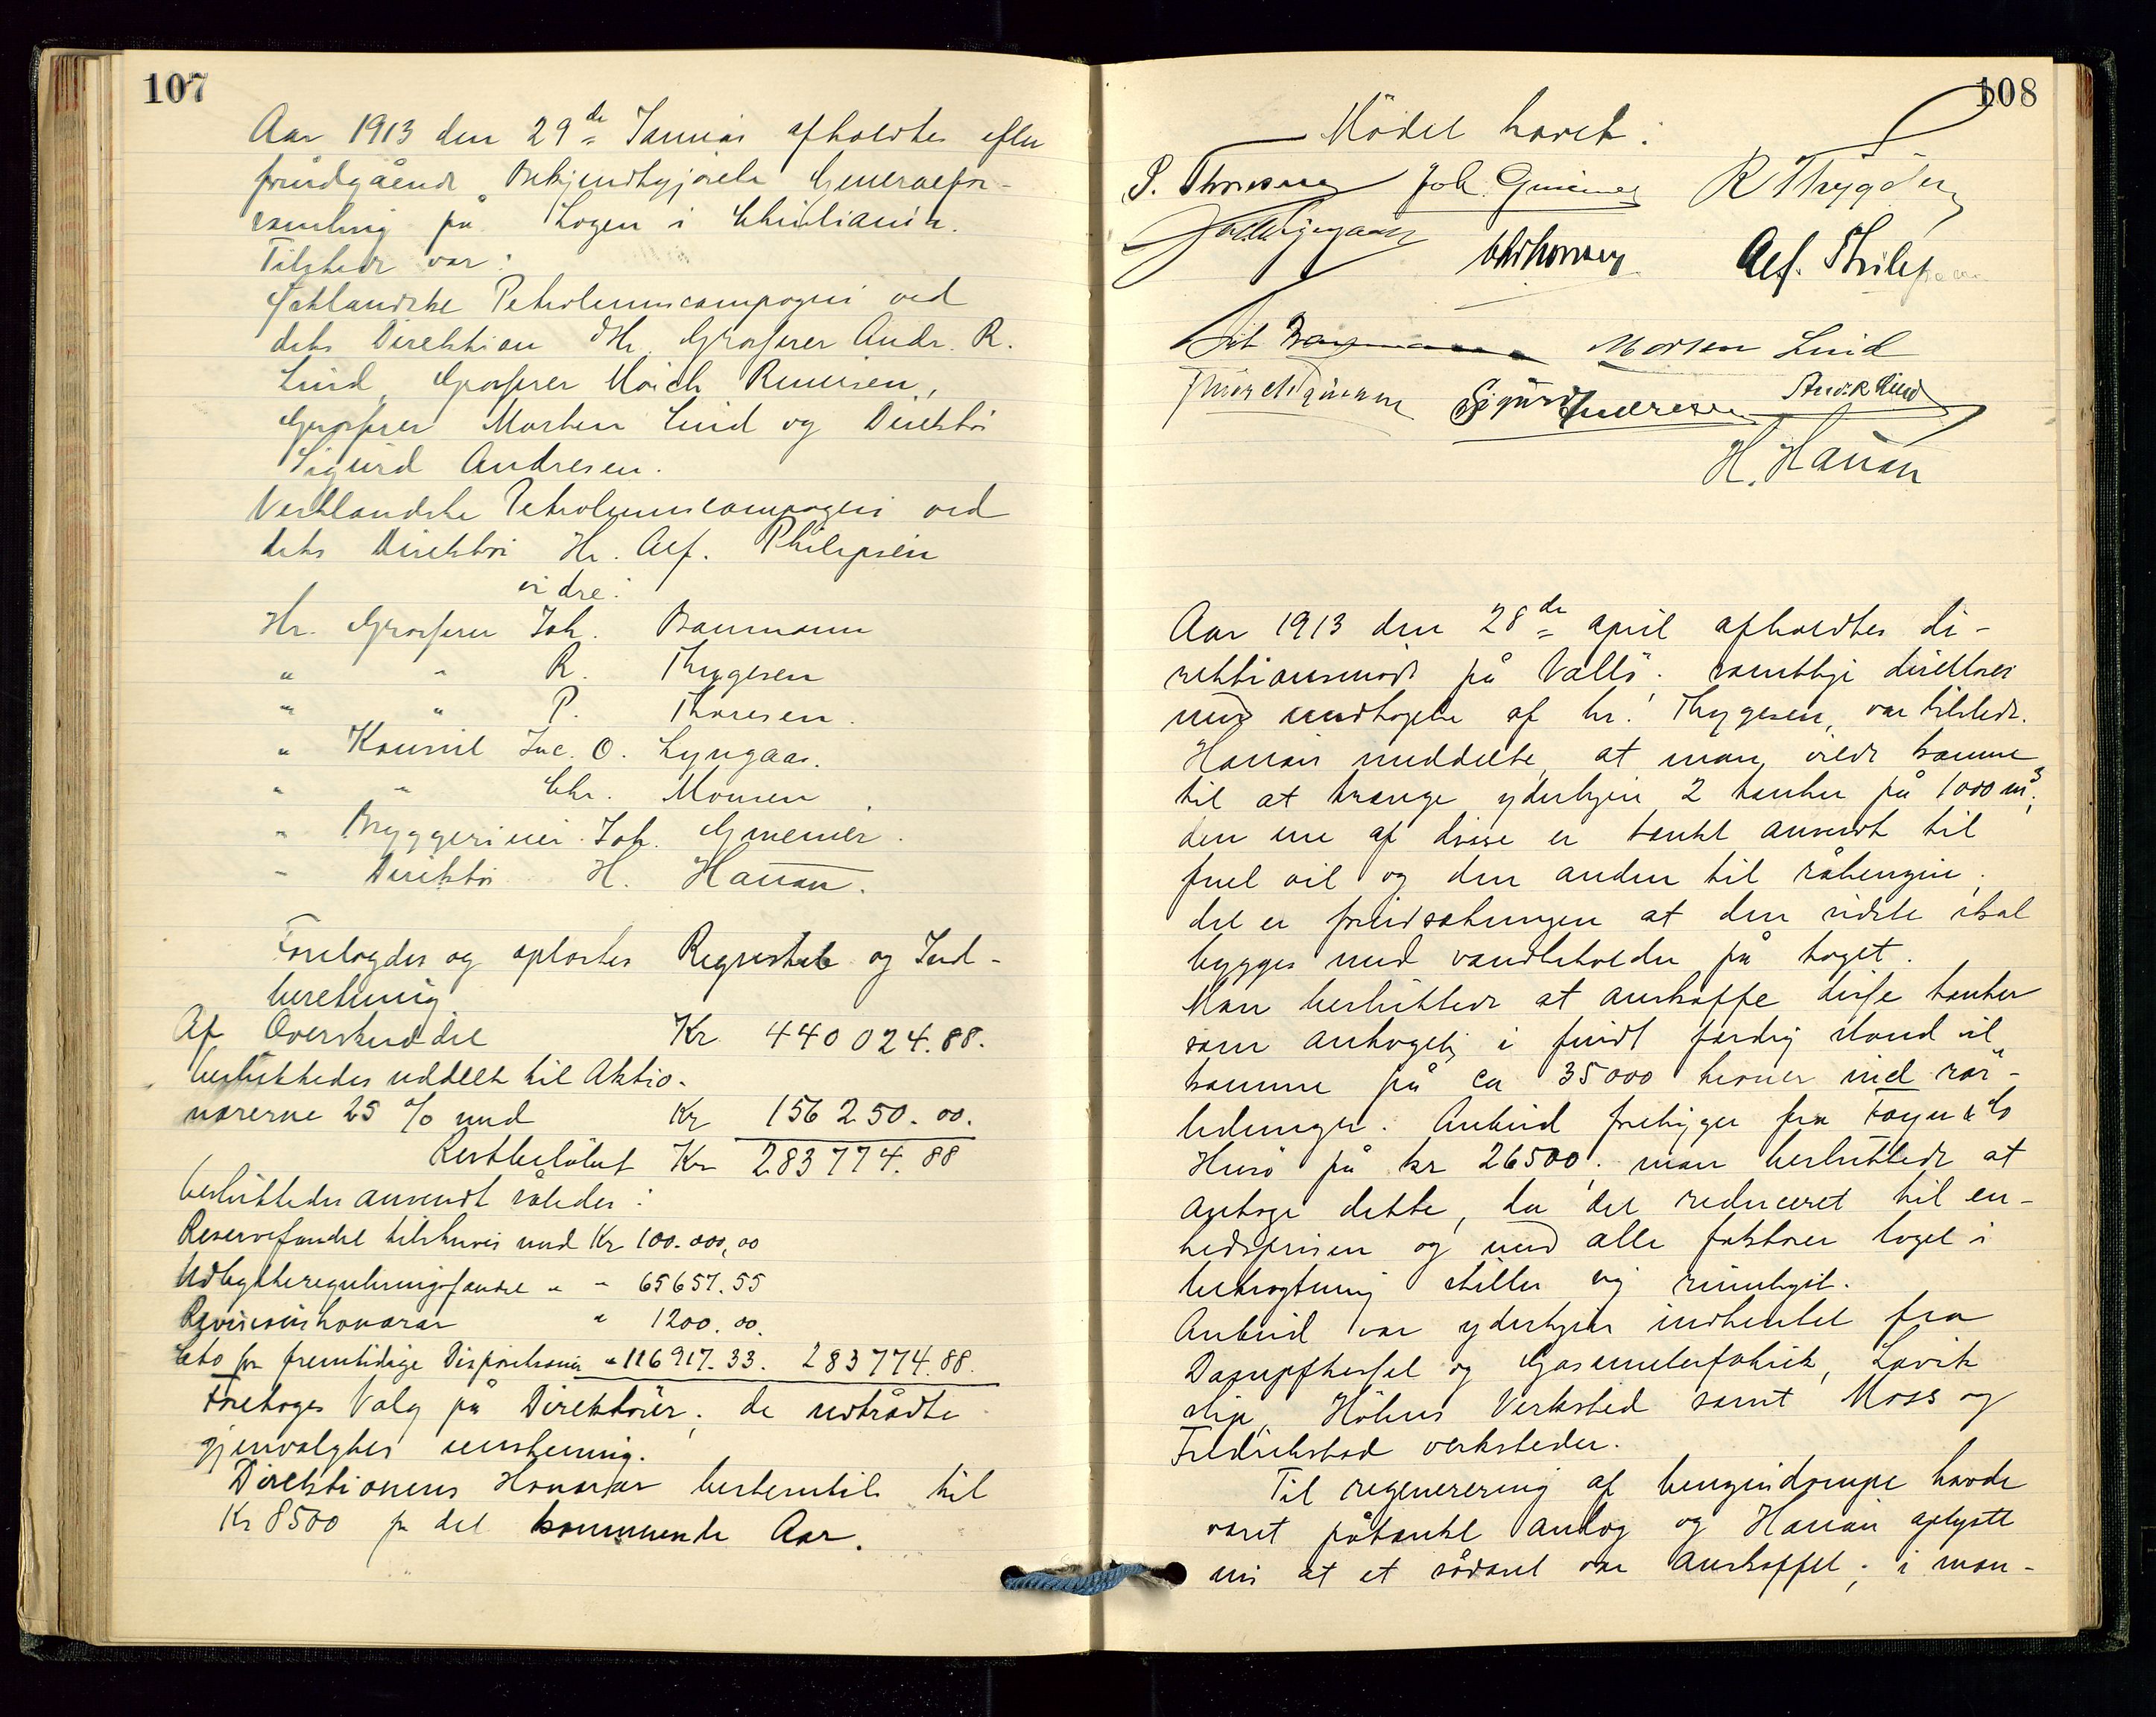 107
Aar 1913 den 29de Januar afholdtes efter
forudgående Bekjendtgjørelse Generalfor-
samling på Logen i Christiania.
Tilstede var:
Østlandske Petroleumscompagni ved
dets Direktion Hr. Grosserer Andr. R.
Lind, Grosserer
Grosserer Morten Lind og Direktør
Sigurd Andresen.
Vestlandske Petroleumscompagni ved
dets Direktør Hr. Alf. Philipsen
vidre:
Hr. Grosserer Joh. Baumann
" " R. Thygesen
" " P. Thoresen.
" Konsul Inc. O. Lyngaas.
" " Chr. Monsen.
" Bryggerieier Joh. Grüner.
" Direktør H. Hauan.
Forelagdes og oplæstes Regnskab og Ind-
beretning
Af Overskuddet Kr 440 024.88.
besluttedes uddelt til Aktio-
nærerne 25 % med Kr 156 250.00.
Restbeløbet Kr 283 774.88
besluttedes anvendt således:
Reservefondet tilskrives med Kr 100.000,00
Udbyttereguleringsfondet " " 65657.55
Revisionshonorar " 1200.00.
Cto for fremtidige Dispositioner " 116917.33. 283774.88.
Foretoges Valg på Direktører; de udtrådte
gjenvalgtes enstemmig.
Direktionens Honorar bestemtes til
Kr 8500 for det kommende Aar.
108
Mödet hævet.
P. Thoresen Joh. Grüner R Thygesen
Alf. Philipsen
Joh Baumann Morten Lind
Sigurd Andresen Andr. R Lind
H. Hauan
Aar 1913 den 28de april afholdtes di-
rektionsmöde på Vallö. samtlige direktører
med undtagelse af hr. Thygesen, var tilstede.
Hauan meddelte, at man vilde komme
til at trænge yderligere 2 tanker på 1000 m³;
den ene af disse er tænkt anvendt til
fuel oil og den anden til råbenzin;
det er forudsætningen at den sidste skal
bygges med vandbeholder på taget.
Man besluttede at anskaffe disse tanker
som antagelig i fuldt færdig stand vil
komme på ca 35000 kroner ind rör-
ledninger. Anbud foreligger fra Fayn & Co
Husö på kr 26500; man besluttede at
antage dette, da det reduceret til en-
hedsprisen og med alle faktorer taget i
betragtning stiller sig rimeligst.
Anbud var yderligere indhentet fra
Dampfkessel og Gasometerfabrik, Laxevåg
Höhns Verksted samt Moss og
Fredrikstad verksteder.
Til regenerering af benzindampe havde
været påtænkt anlæg og Hauan oplyste
nu at et sådant var anskaffet; i man-